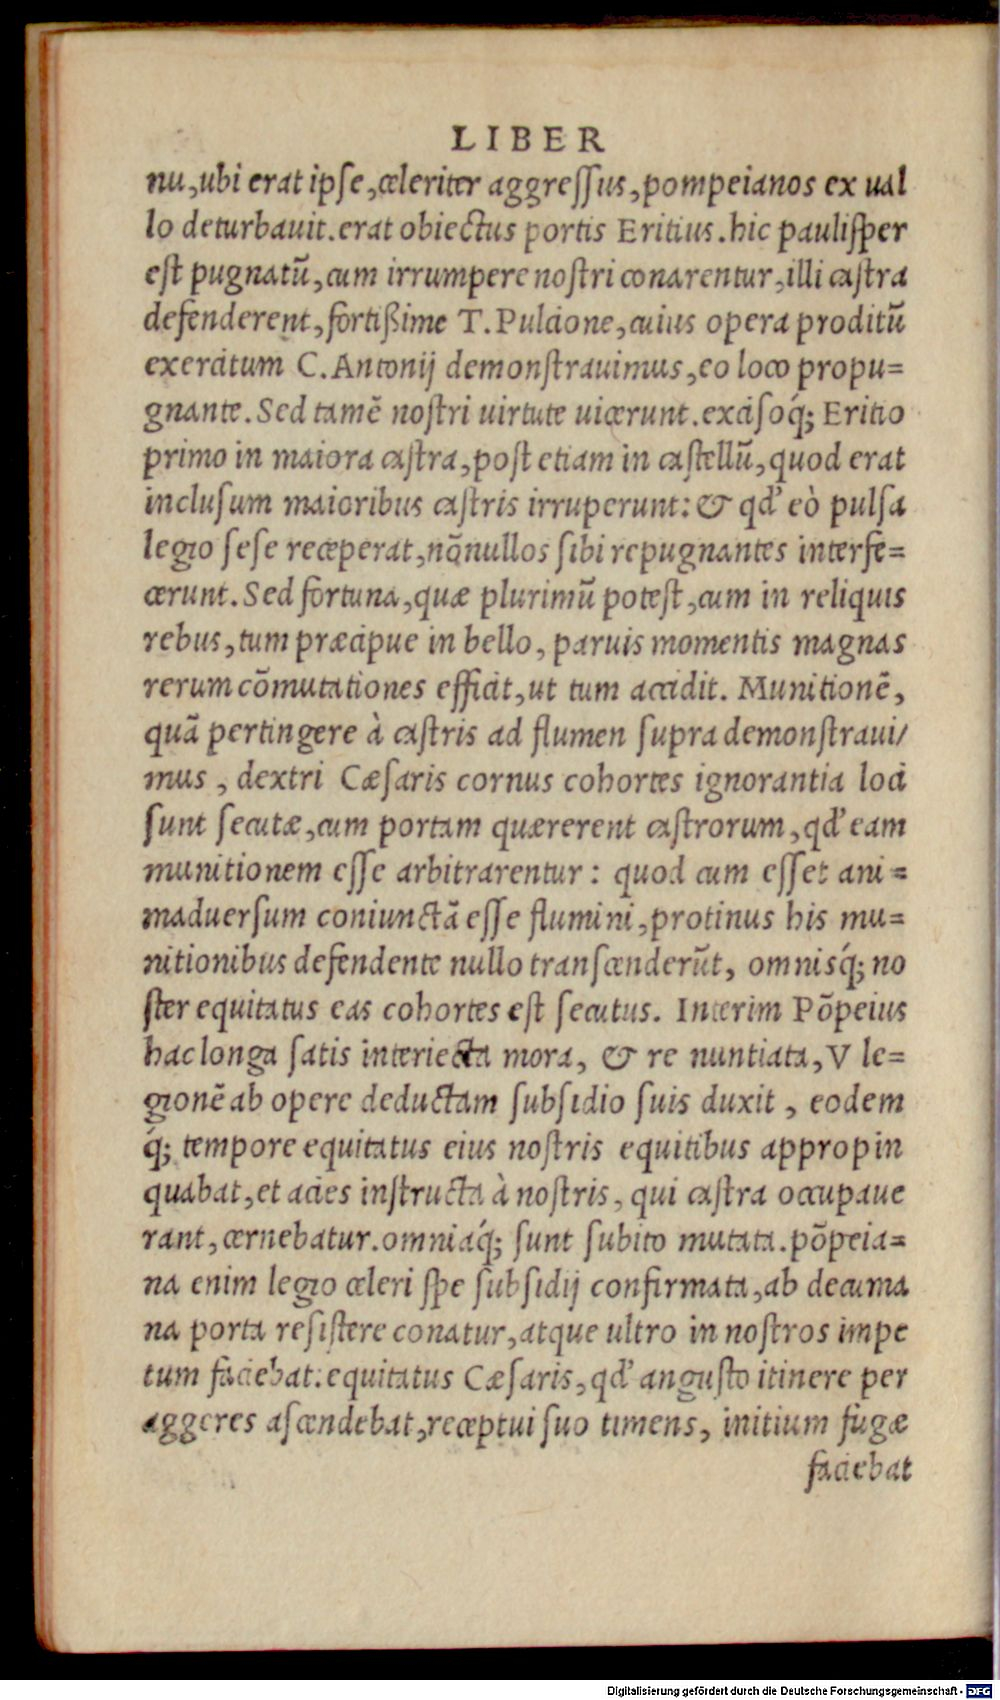 LIBER
nu, ubi erat ipse, celeriter aggressus, pompeianos ex ual
lo deturbauit. erat obiectus portis Eritius. hic paulisper
est pugnatũ, cum irrumpere nostri conarentur, illi castra
defenderent, fortißime T. Pulcione, cuius opera proditũ
exercitum C. Antonij demonstrauimus, eo loco propu=
gnante. Sed tamẽ nostri uirtute uicerunt. excisoq́; Eritio
primo in maiora castra, post etiam in castellũ, quod erat
inclusum maioribus castris irruperunt: & qd' eò pulsa
legio sese receperat, nõnullos sibi repugnantes interfe=
cerunt. Sed fortuna, quæ plurimũ potest, cum in reliquis
rebus, tum præcipue in bello, paruis momentis magnas
rerum cõmutationes efficit, ut tum accidit. Munitionẽ,
quã pertingere à castris ad flumen supra demonstraui/
mus, dextri Cæsaris cornus cohortes ignorantia loci
sunt secutæ, cum portam quærerent castrorum, qd' eam
munitionem esse arbitrarentur: quod cum esset ani=
maduersum coniunctã esse flumini, protinus his mu=
nitionibus defendente nullo transcenderũt, omnisq́; no
ster equitatus eas cohortes est secutus. Interim Põpeius
hac longa satis interiecta mora, & re nuntiata, V le=
gionẽ ab opere deductam subsidio suis duxit, eodem
q́; tempore equitatus eius nostris equitibus appropin
quabat, et acies instructa à nostris, qui castra occupaue
rant, cernebatur. omniaq́; sunt subito mutata. põpeia=
na enim legio celeri spe subsidij confirmata, ab decuma
na porta resistere conatur, atque ultro in nostros impe
tum faciebat. equitatus Cæsaris, qd' angusto itinere per
aggeres ascendebat, receptui suo timens, initium fugæ
faciebat
Digitalisierung gefördert durch die Deutsche Forschungsgemeinschaft - DFG